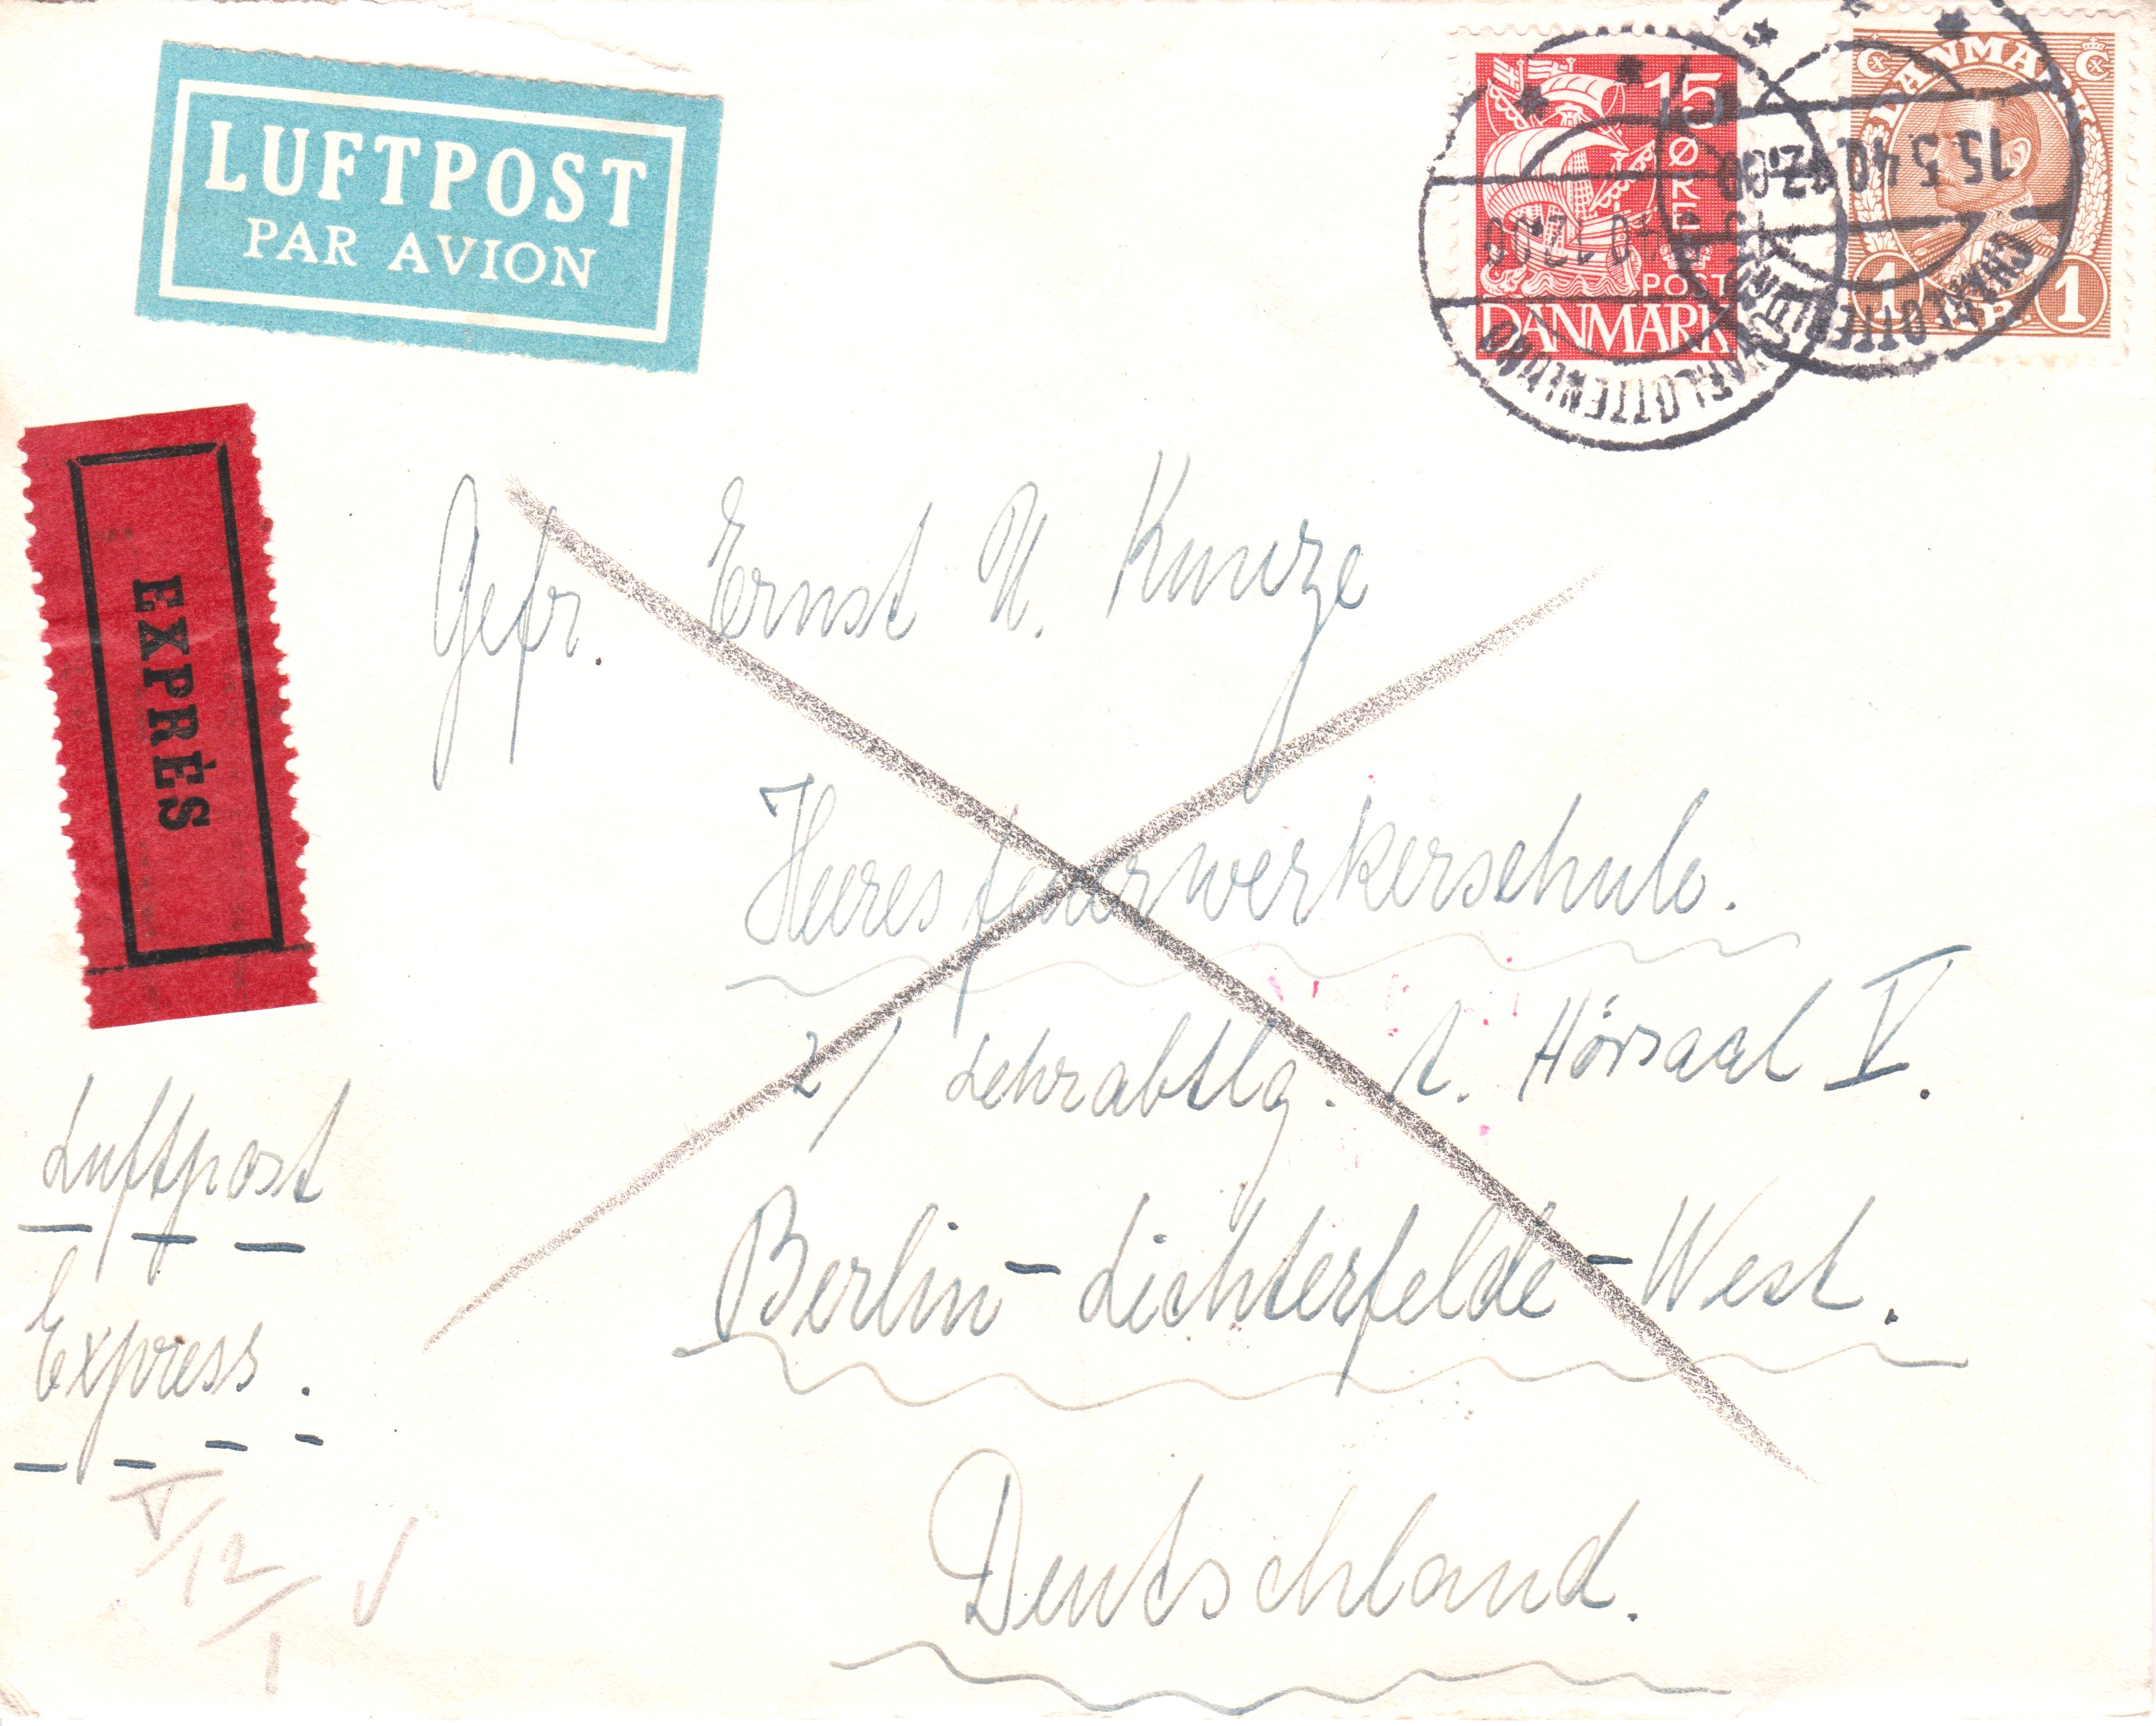 LUFTPOST
PAR AVION
15
ØRE
POST
DANMARK
DANMARK
1 KR. 1
15.5.40
CHARLOTTENLUND
CHARLOTTENLUND
EXPRÈS
Gefr. Ernst U. Kunze
Heeresfeuerwerkerschule.
2/ Lehrabtlg. A. Hörsaal V.
Berlin-Lichterfelde-West.
Deutschland.
Luftpost
Express.
V/12/1